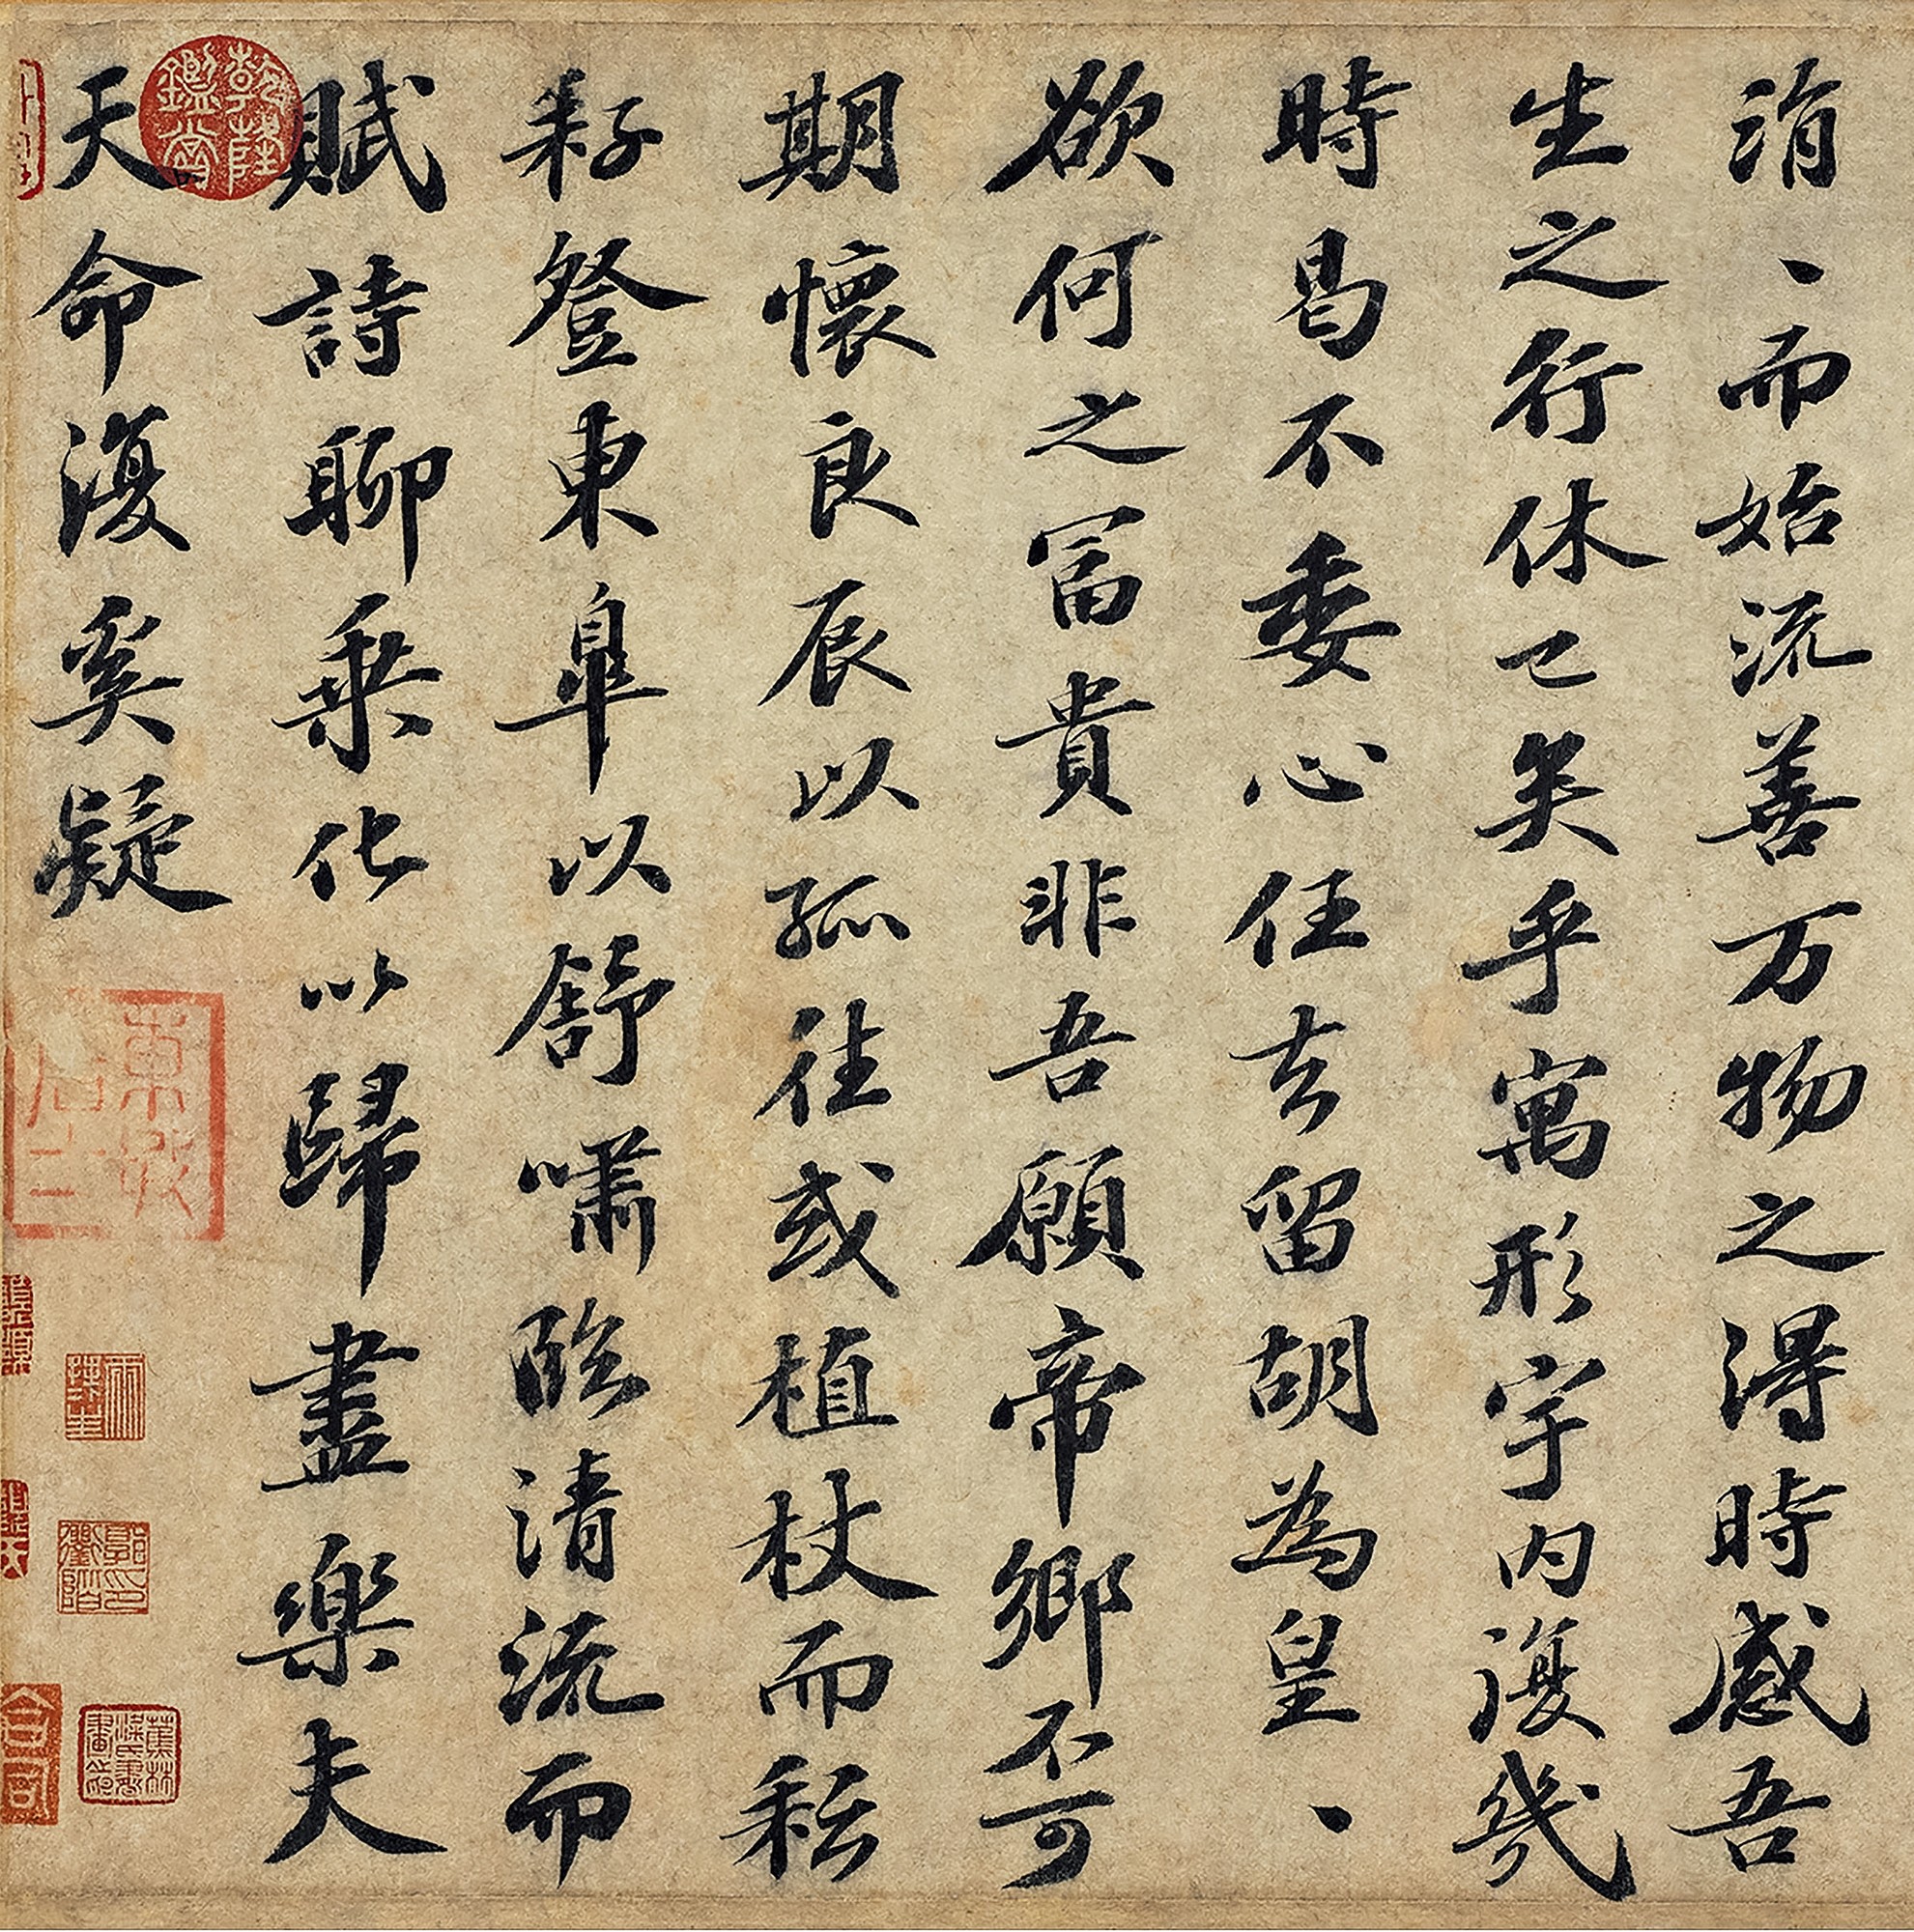 涓、而始流善万物之得時感吾
生之行休已矣乎寓形宇内復幾
時曷不委心任去留胡為皇、
欲何之冨貴非吾願帝鄉不可
期懷良辰以孤往或植杖而耘
耔登東臯以舒嘯臨清流而
賦詩聊乗化以歸盡樂夫
天命復奚疑
乾隆鑑賞
蕉林梁氏書畫之印
合同